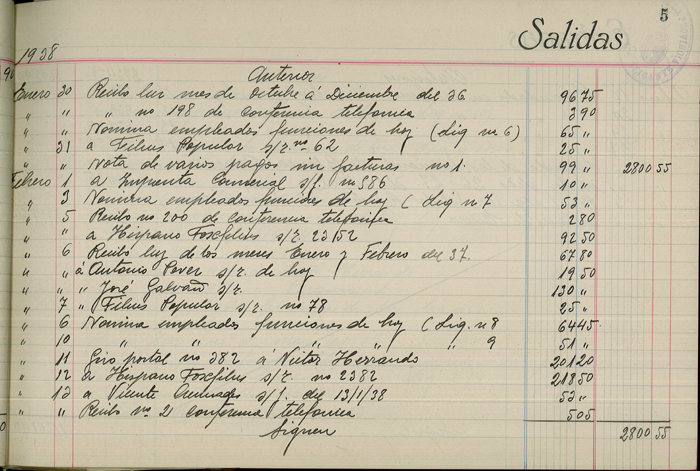 5
Salidas
1938
Anterior
Enero 30 Recibo luz mes de Octubre á Diciembre del 36 9675
" " " no 198 de conferencia telefonica 390
" " Nomina empleados funciones de hoy (liq nº 6) 65 "
" 31 a Films Popular s/r. nº 62 25 "
" " Nota de varios pagos sin facturas no 1. 99 " 2800 55
Febrero 1 a Imprenta Comercial s/f. nº 586 10 "
" 3 Nomina empleados funciones de hoy (liq nº 7 53 "
" 5 Recibo no 200 de conferencia telefonica 280
" " a Hispano Foxfilms s/r. 23152 9250
" 6 Recibo luz de los meses Enero y Febrero del 37. 6780
" " á Antonio Pover s/r. de hoy 1950
" " " José Galvañ s/r. 130 "
" 7 " Films Popular s/r. no 78 25 "
" 6 Nomina empleados funciones de hoy (liq. nº 8 6445
" 10 " " " " 9 51 "
" 11 Giro postal no 382 á Victor Herrando 20120
" 12 a Hispano Foxfilms s/r. no 2382 21850
" 13 a Vicente s/f. del 13/1/38 53 "
" " Recibo no 21 conferencia telefonica 505
Siguen 2800 55